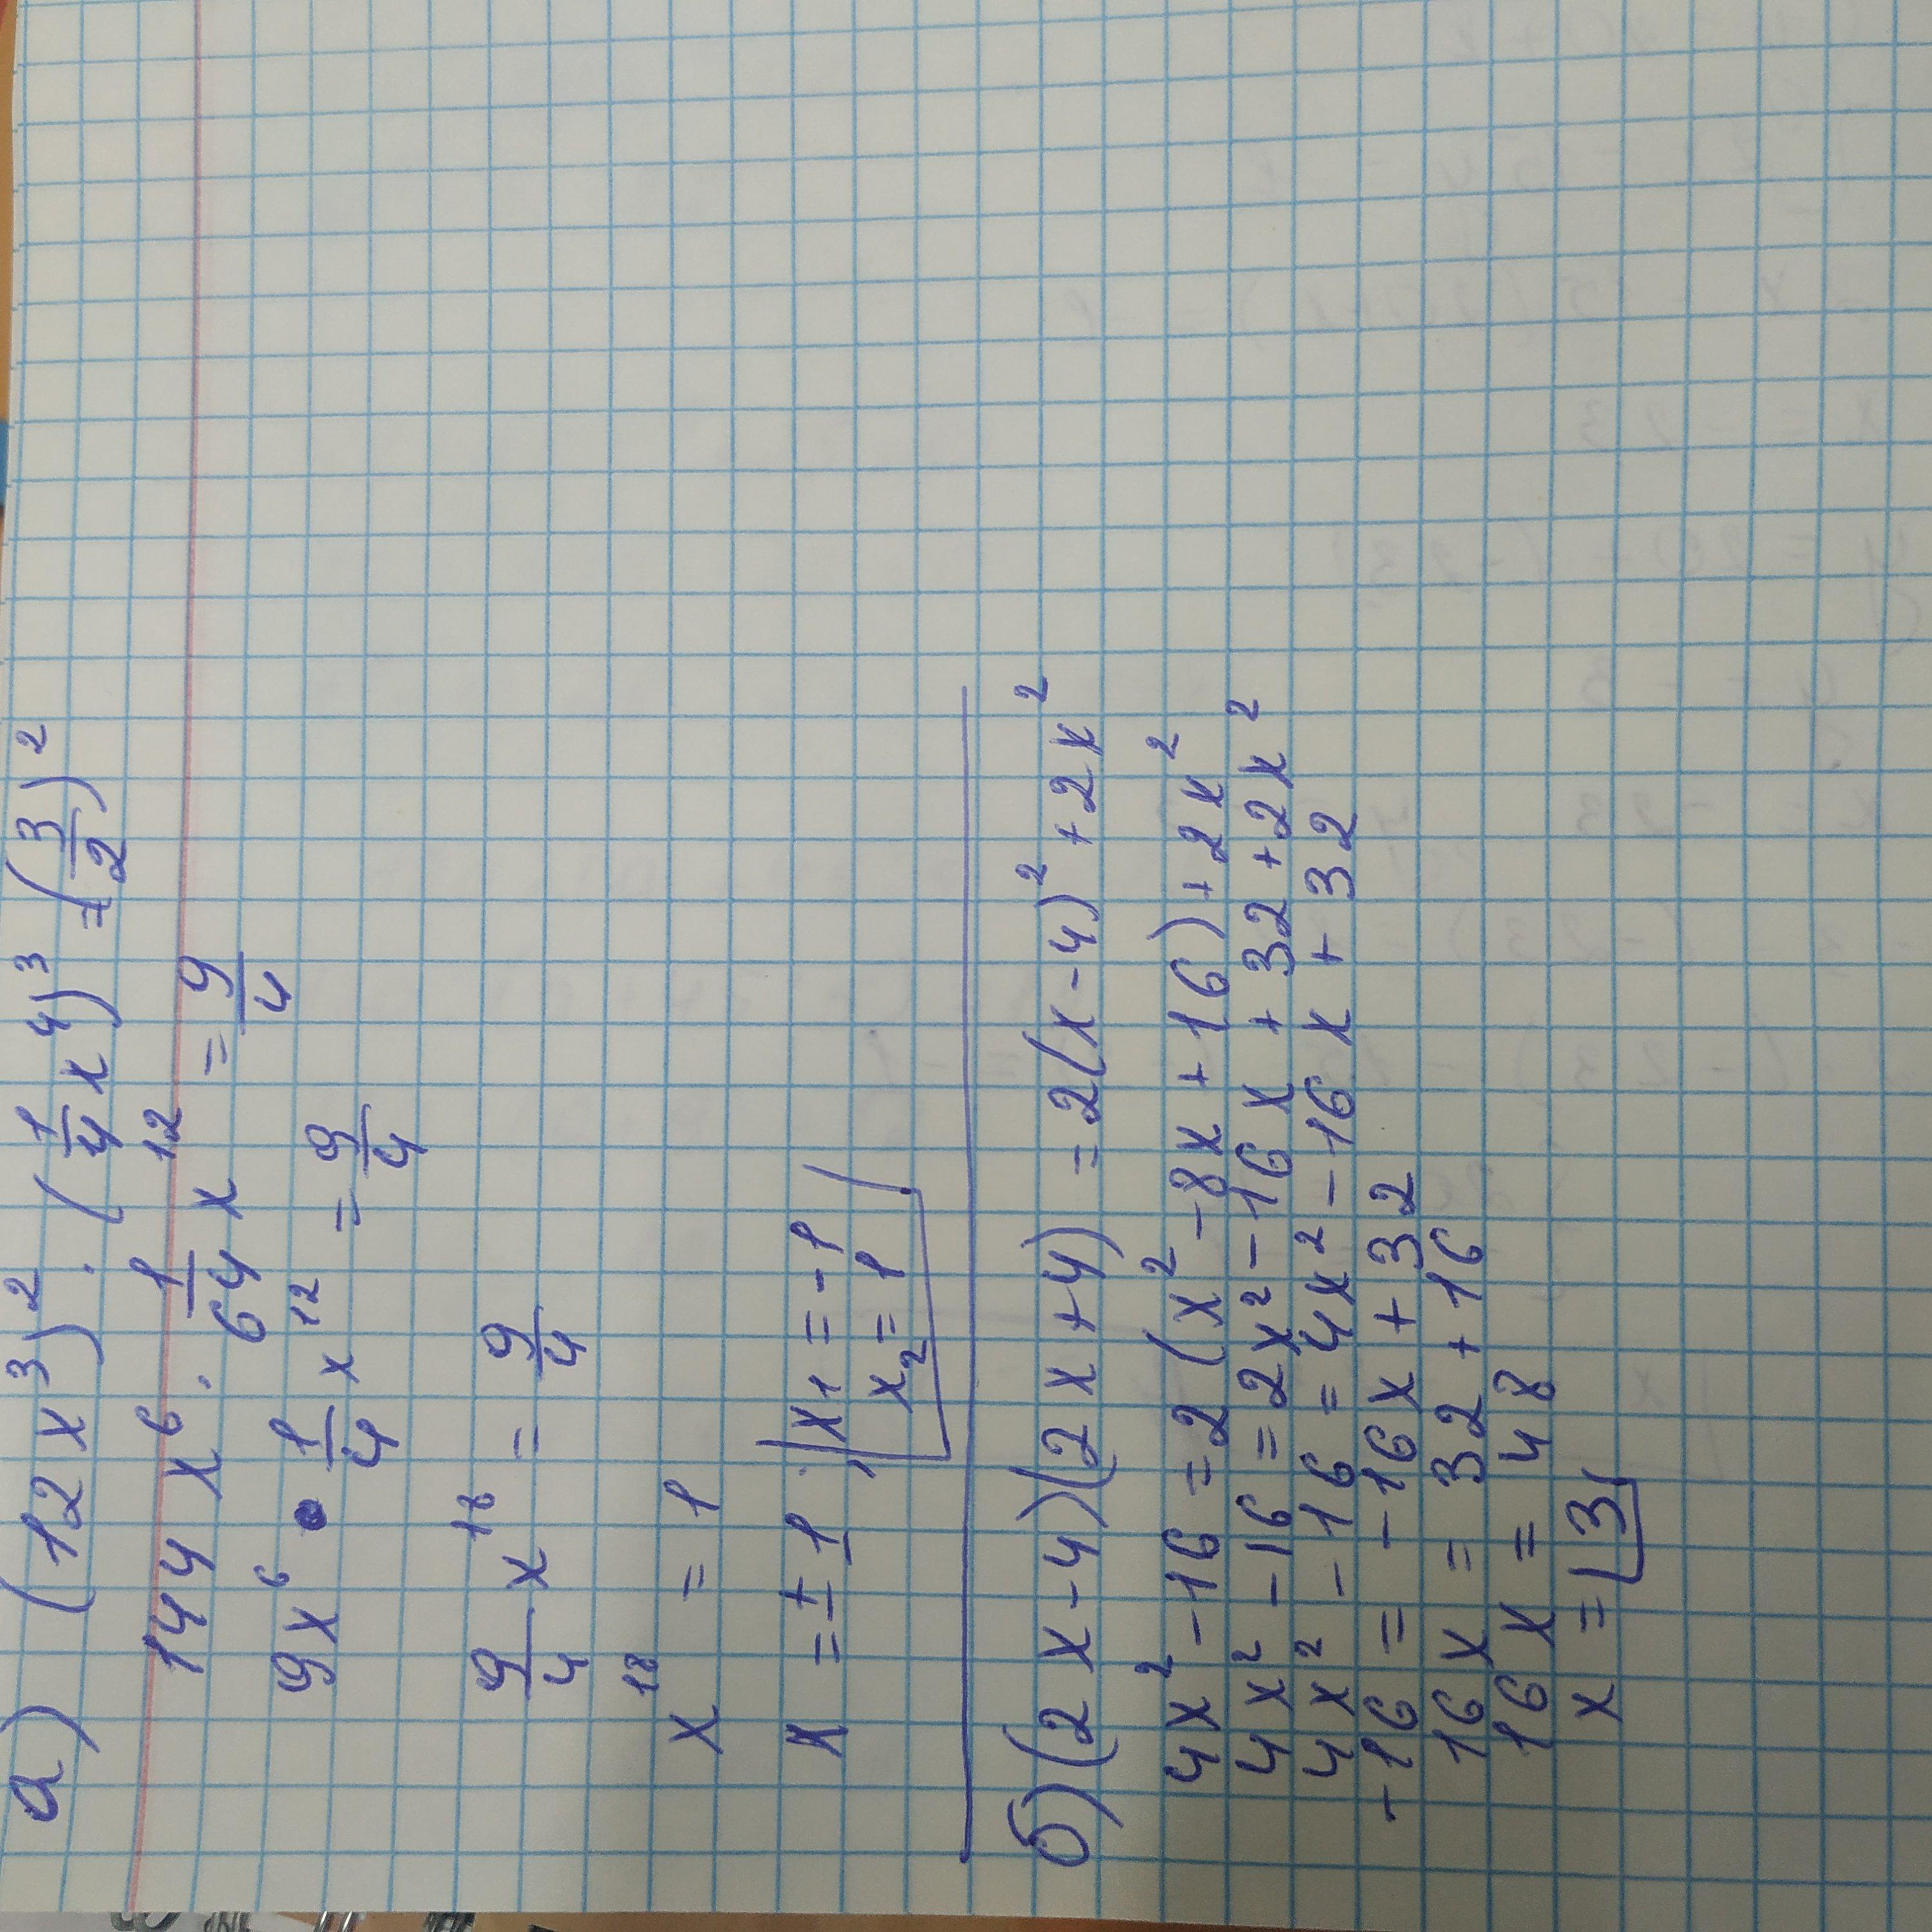 а) (12x³)² · (1/4 x⁴)³ = (3/2)²
144x⁶ · 1/64 x¹² = 9/4
9x⁶ · 1/4 x¹² = 9/4
9/4 x¹⁸ = 9/4
x¹⁸ = 1
x = ±1; x₁ = -1
x₂ = 1
б) (2x-4)(2x+4) = 2(x-4)² + 2x²
4x² - 16 = 2(x² - 8x + 16) + 2x²
4x² - 16 = 2x² - 16x + 32 + 2x²
4x² - 16 = 4x² - 16x + 32
-16 = -16x + 32
16x = 32 + 16
16x = 48
x = 3